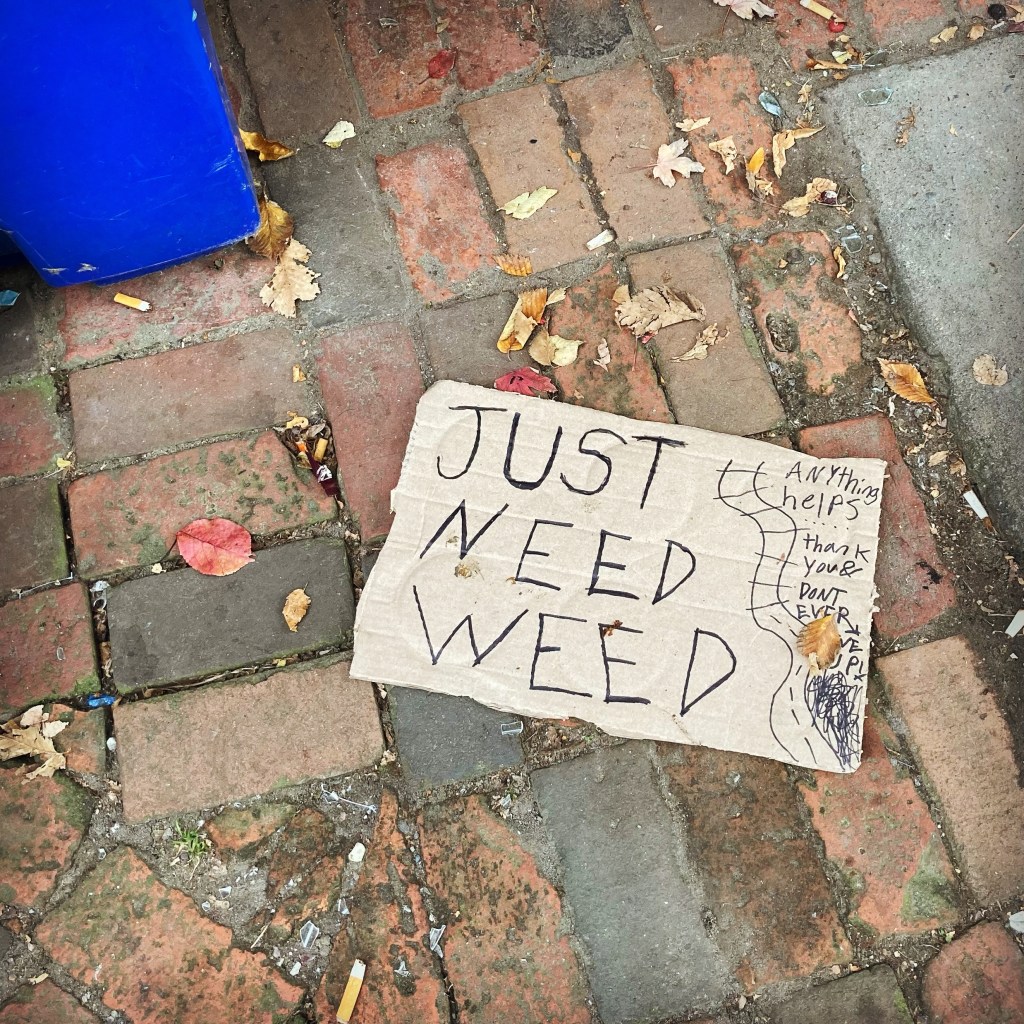 JUST
NEED
WEED
ANYthing
helps
thank
you &
DONT
EVER